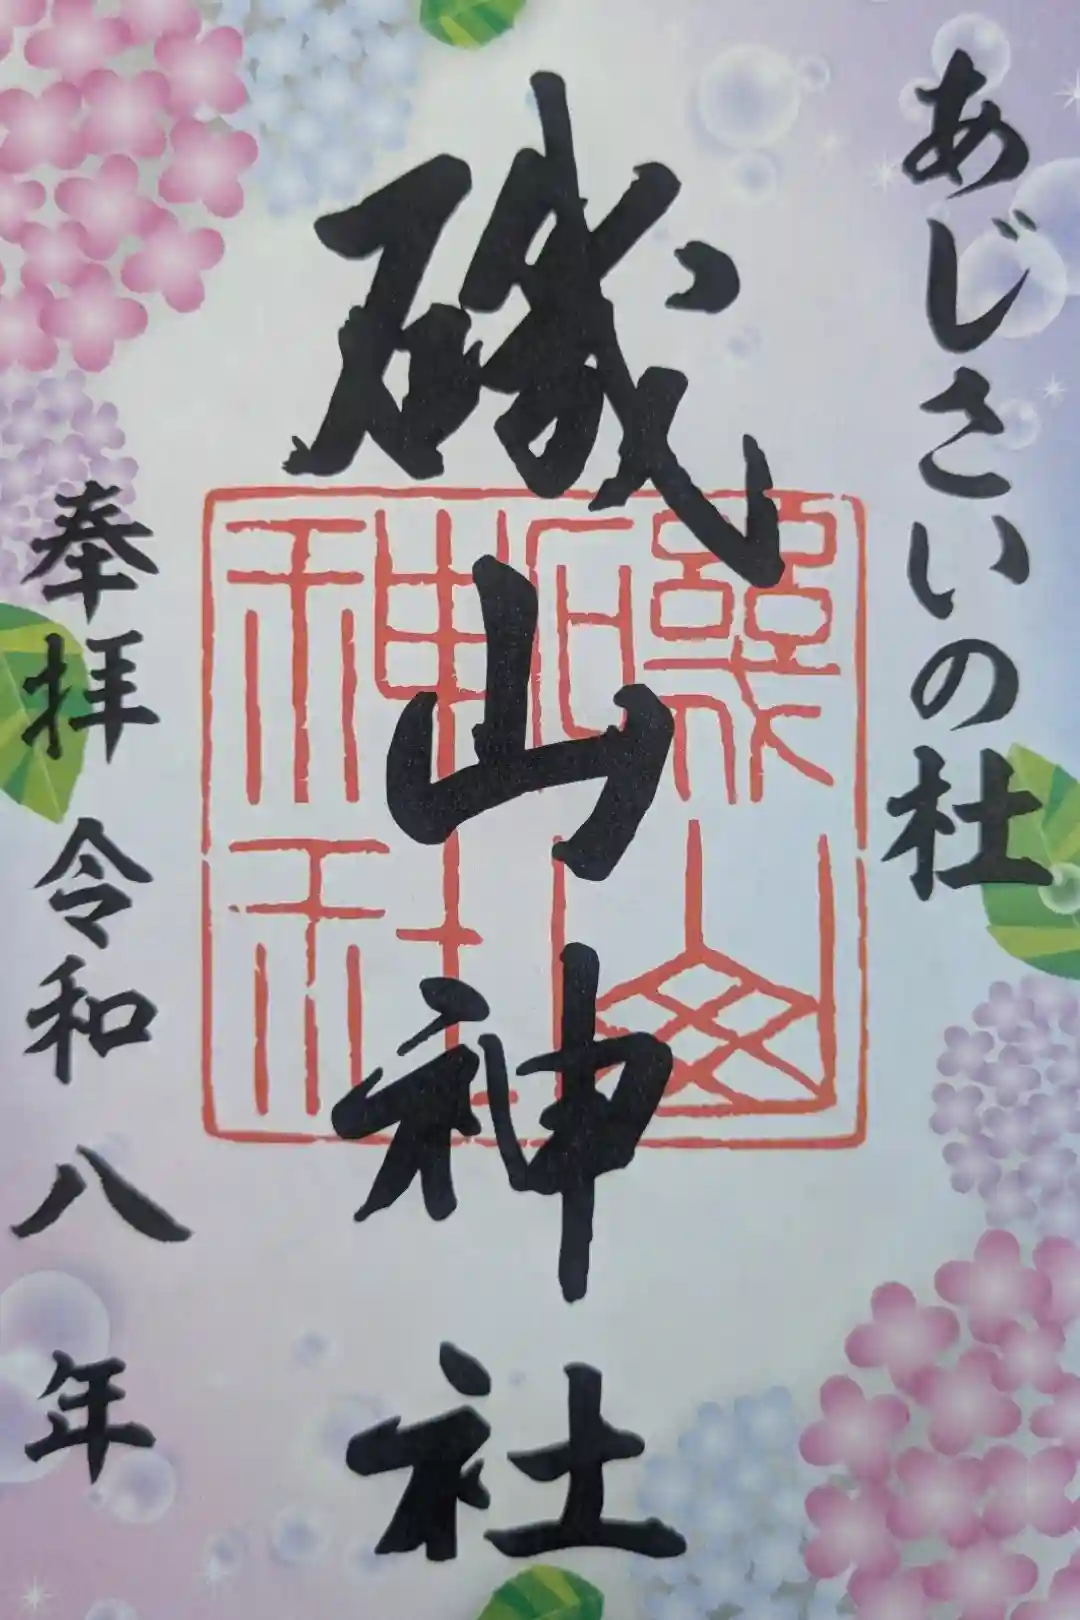 あじさいの杜
磯山神社
磯山神社
奉拝 令和 八 年